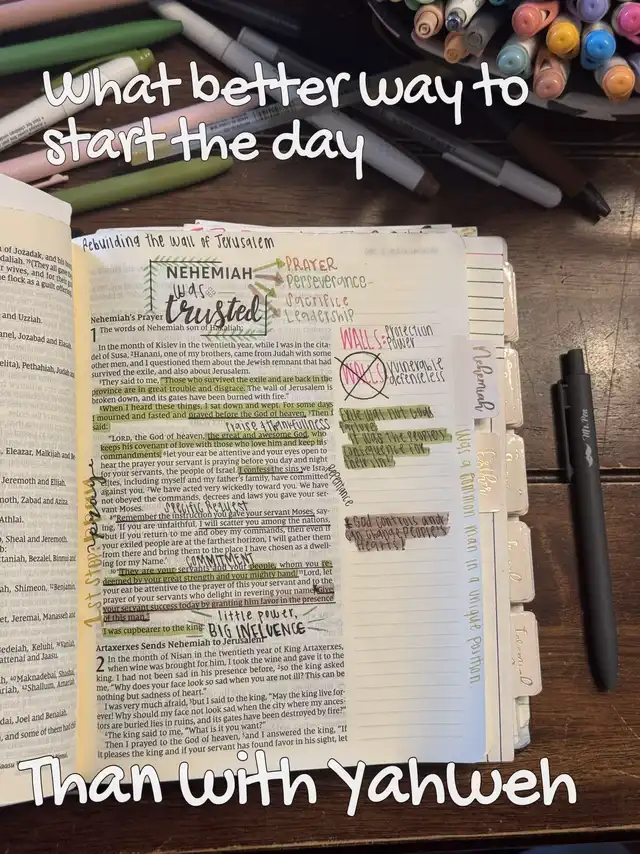 What better way to
start the day
Rebuilding the wall of Jerusalem
NEHEMIAH
was
trusted
PRAYER
Perseverance
Sacrifice
Leadership
Nehemiah's Prayer
1 The words of Nehemiah son of Hakaliah:
In the month of Kislev in the twentieth year, while I was in the cita-
del of Susa, ²Hanani, one of my brothers, came from Judah with some
other men, and I questioned them about the Jewish remnant that had
survived the exile, and also about Jerusalem.
³They said to me, "Those who survived the exile and are back in the
province are in great trouble and disgrace. The wall of Jerusalem is
broken down, and its gates have been burned with fire."
⁴When I heard these things, I sat down and wept. For some days
I mourned and fasted and prayed before the God of heaven. ⁵Then I
said:
Praise & Thankfulness
"LORD, the God of heaven, the great and awesome God, who
keeps his covenant of love with those who love him and keep his
commandments, ⁶let your ear be attentive and your eyes open to
hear the prayer your servant is praying before you day and night
for your servants, the people of Israel. I confess the sins we Isra-
elites, including myself and my father's family, have committed
against you. ⁷We have acted very wickedly toward you. We have
not obeyed the commands, decrees and laws you gave your ser-
vant Moses.
Specific Request
⁸"Remember the instruction you gave your servant Moses, say-
ing, 'If you are unfaithful, I will scatter you among the nations,
⁹but if you return to me and obey my commands, then even if
your exiled people are at the farthest horizon, I will gather them
from there and bring them to the place I have chosen as a dwell-
ing for my Name.'
COMMITMENT
¹⁰"They are your servants and your people, whom you re-
deemed by your great strength and your mighty hand. ¹¹Lord, let
your ear be attentive to the prayer of this your servant and to the
prayer of your servants who delight in revering your name. Give
your servant success today by granting him favor in the presence
of this man."
little power,
BIG INFLUENCE
I was cupbearer to the king.
Artaxerxes Sends Nehemiah to Jerusalem
2 In the month of Nisan in the twentieth year of King Artaxerxes,
when wine was brought for him, I took the wine and gave it to the
king. I had not been sad in his presence before, ²so the king asked
me, "Why does your face look so sad when you are not ill? This can be
nothing but sadness of heart."
I was very much afraid, ³but I said to the king, "May the king live for-
ever! Why should my face not look sad when the city where my ances-
tors are buried lies in ruins, and its gates have been destroyed by fire?"
⁴The king said to me, "What is it you want?"
Then I prayed to the God of heaven, ⁵and I answered the king, "If
it pleases the king and if your servant has found favor in his sight, let
WALLS: Protection
Power
WALLS vulnerable
defenseless
Exile was not Gods
failure
It was the people's
consequence for
their sin!
Repentance
God controls and
can change people's
hearts!
1st step: prayer
Was a common man in a unique position
Nehemiah
Esther
Mr. Pen
Than with Yahweh